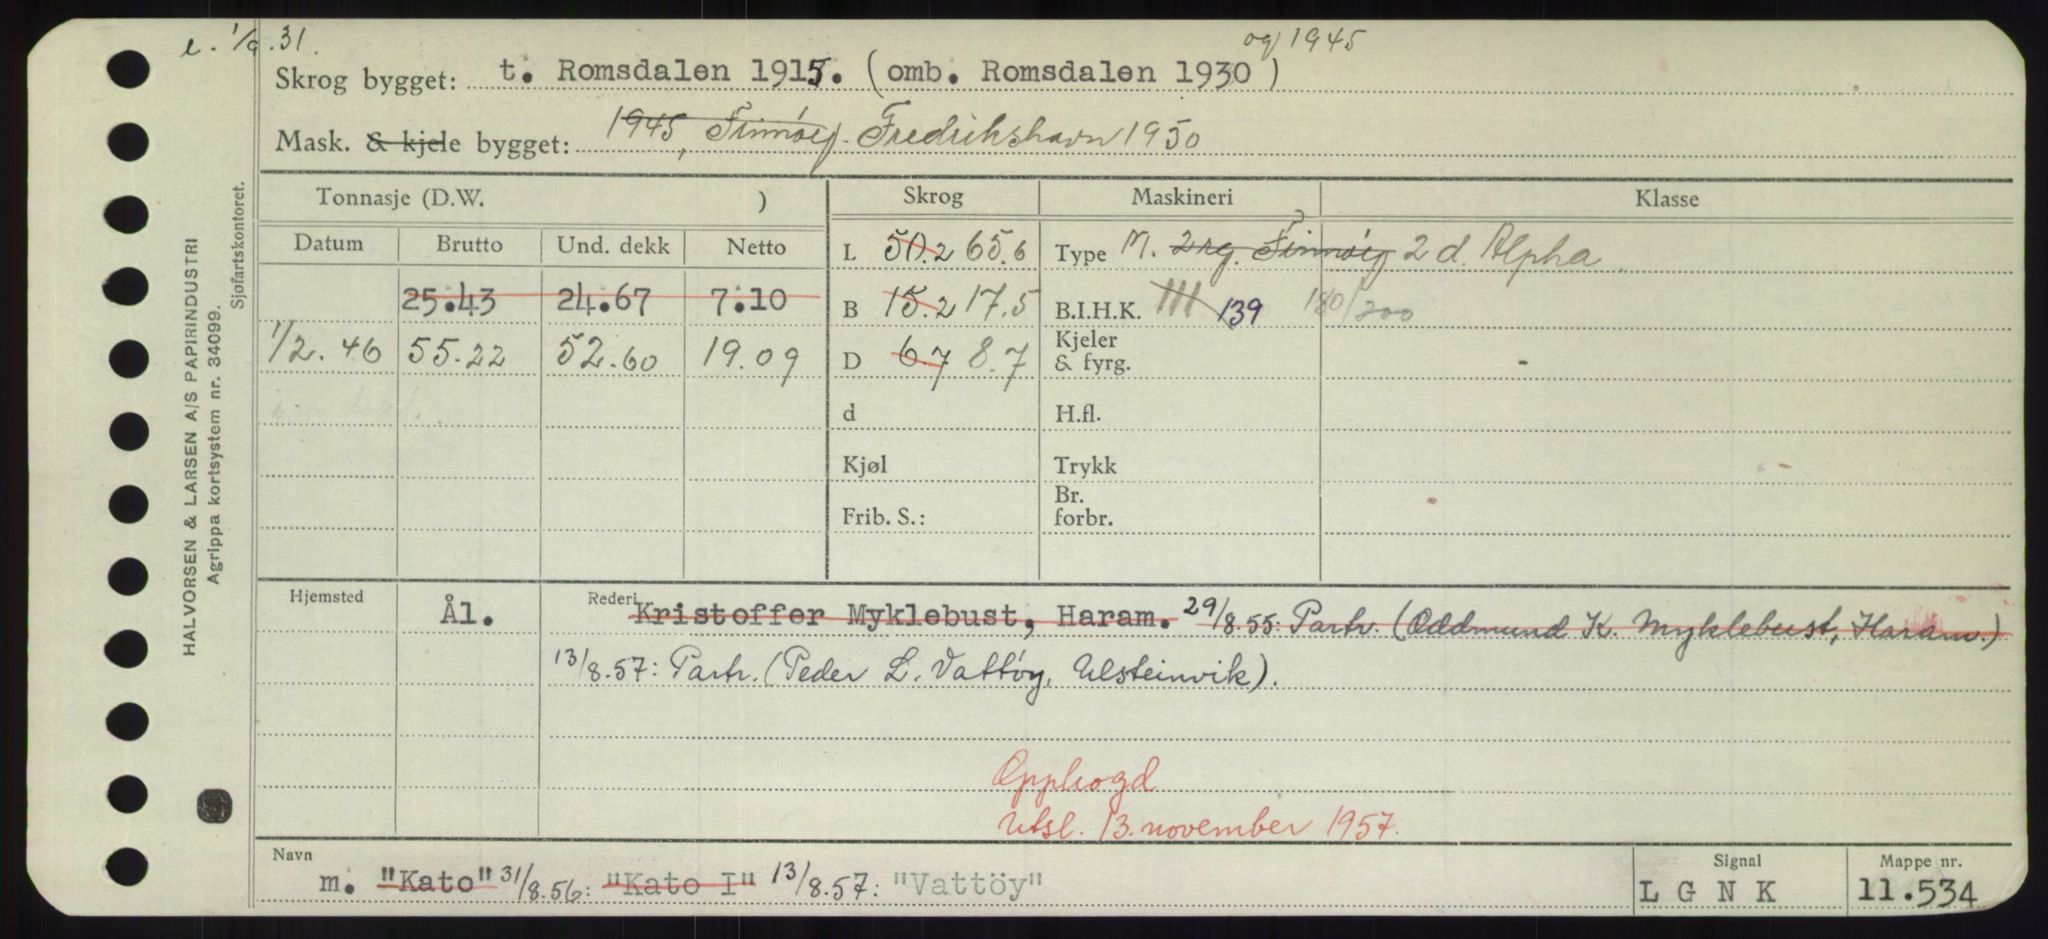 e. 1/9.31.
og 1945
Skrog bygget: t. Romsdalen 1915. (omb. Romsdalen 1930)
Mask. & kjele bygget: 1945, Finnøy. Fredrikshavn 1950
Tonnasje (D.W. ) Skrog Maskineri Klasse
Datum Brutto Und. dekk Netto L 50.2 65.6 Type M. 2 rg. Finnøy 2 d. Alpha
25.43 24.67 7.10 B 15.2 17.5 B.I.H.K. 111 139 180/200
1/2.46 55.22 52.60 19.09 D 6.7 8.7 Kjeler & fyrg. -
d H.fl.
Kjøl Trykk
Frib. S.: Br. forbr.
Hjemsted Ål. Rederi Kristoffer Myklebust, Haram. 29/8.55: Partr. (Oddmund K. Myklebust, Haram.)
13/8.57: Partr. (Peder L. Vattöy, Ulsteinvik).
Opphogd
Utsl. 13. november 1957.
Navn Signal Mappe nr.
m. "Kato" 31/8.56: "Kato I" 13/8.57: "Vattöy" L G N K 11.534
HALVORSEN & LARSEN A/S PAPIRINDUSTRI
Agrippa kortsystem nr. 34099.
Sjøfartskontoret.